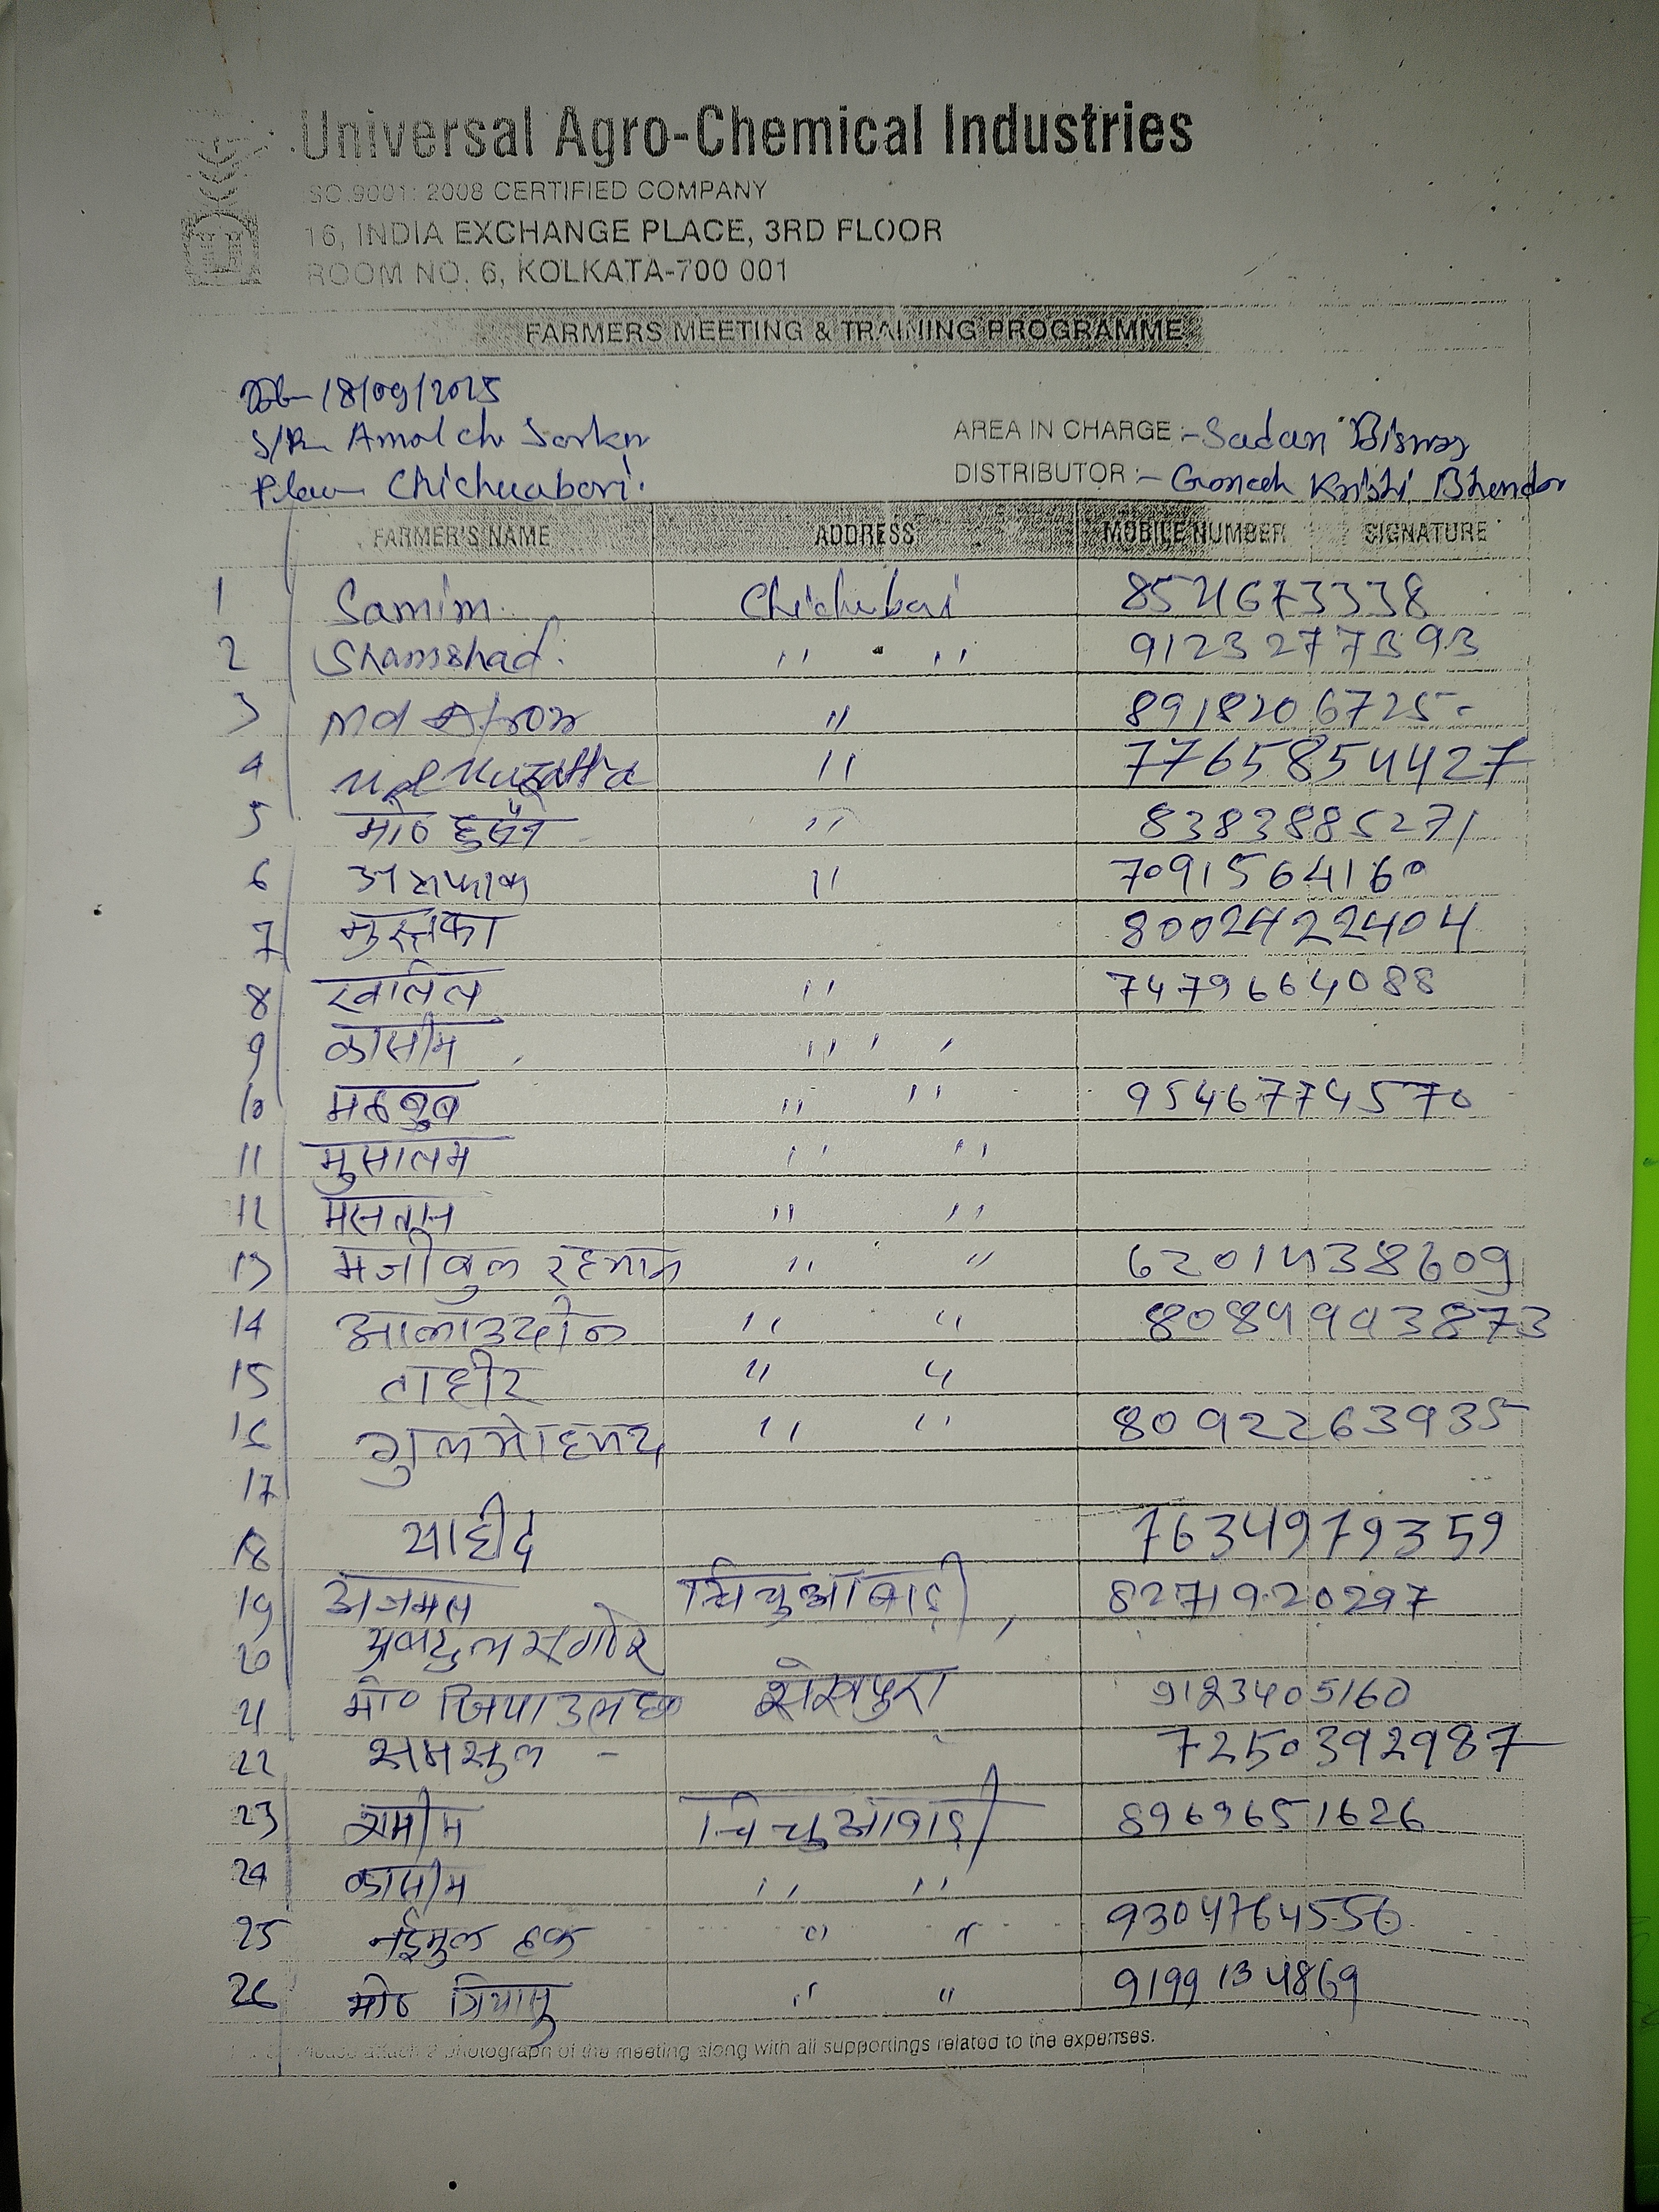 Universal Agro-Chemical Industries
SO.9001: 2008 CERTIFIED COMPANY
16, INDIA EXCHANGE PLACE, 3RD FLOOR
ROOM NO. 6, KOLKATA-700 001
FARMERS MEETING & TRAINING PROGRAMME
18/09/2025
S/R Amal ch Sarkar
AREA IN CHARGE :- Sadan Biswas
Chichuabari.
DISTRIBUTOR :- Ganesh Krishi Bhendar
FARMER'S NAME ADDRESS MOBILE NUMBER SIGNATURE
1 Samim Chichubari
2 Shamshad. " " 9123277393
3 Md " 8918206725
4 Md " 7765854427
5 मो० हुसैन " 8383885271
6 असफाक " 7091564160
7 मुस्तफा
8 खलिल " 7479664088
9 कासीम " "
10 महबुब " " 9546774570
11 मुसालम " "
12 " "
13 मजीबुल रहमान " " 6201438609
14 आलाउदीन " "
15 ताहीर " "
16 गुलमोहमद " " 8092263935
17
18 साहीद 7634979359
19 अजमल चिचुआबाड़ी, 8271920297
20
21 मो० जियाउलहक शेखपुरा 9123405160
22 समसुल - 7250392987
23 शमीम चिचुआबाड़ी 8969651626
24 कासीम " "
25 नईमुल हक " " 9304764556
26 मो० " " 9199134869
Please attach 2 photograph of the meeting along with all supportings related to the expenses.